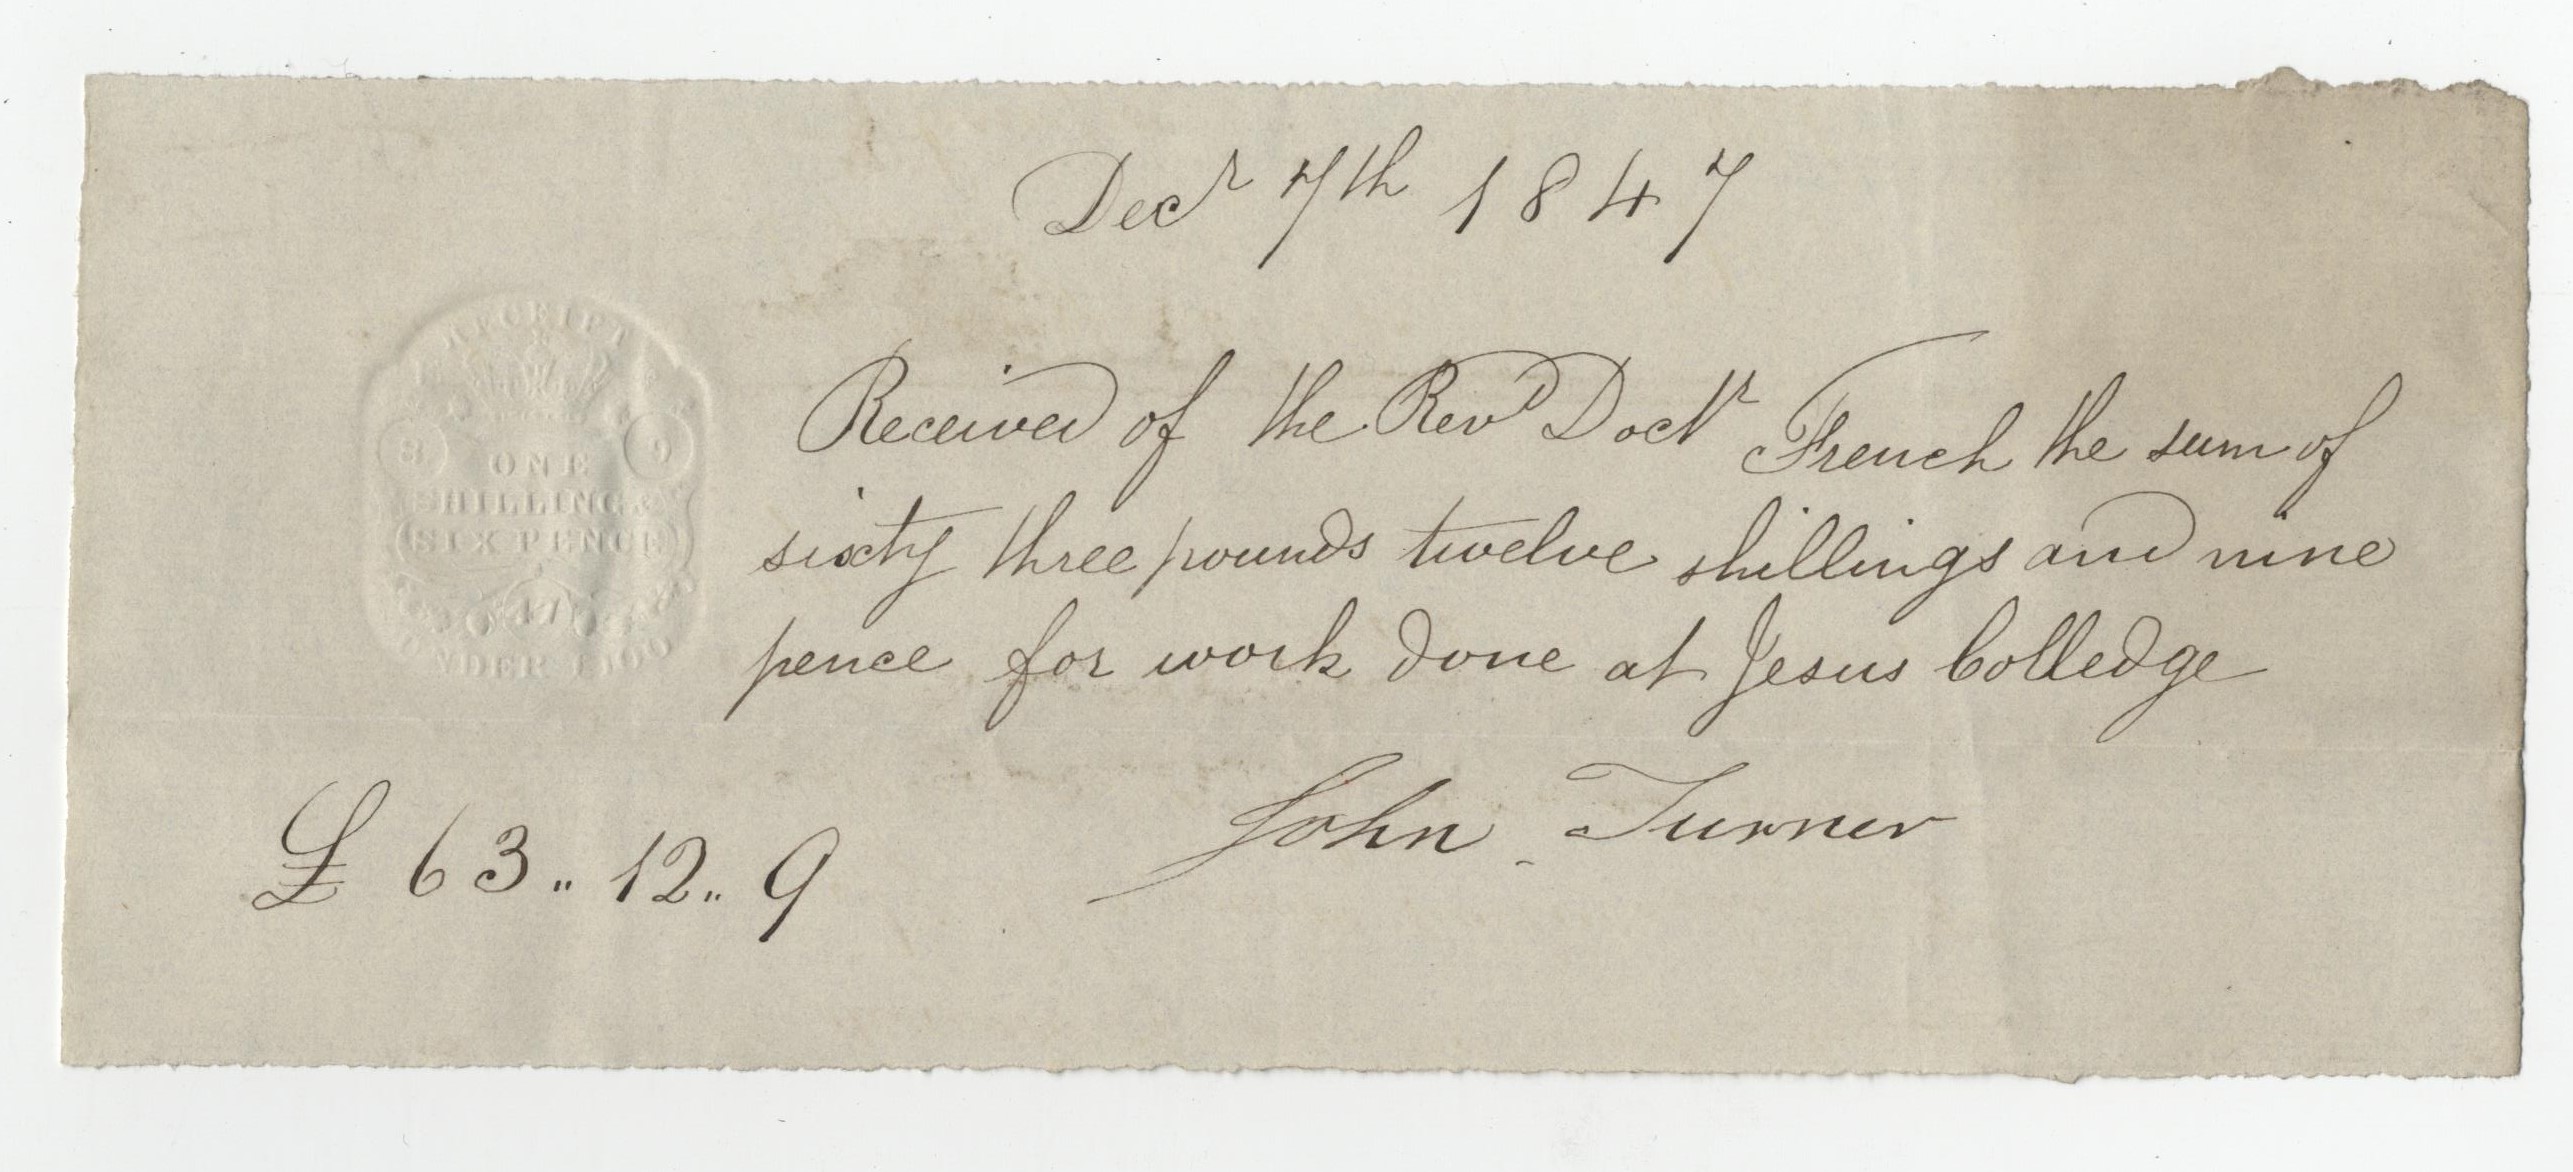 Decr 7th 1847
RECEIPT
Received of the Revd Doctr French the sum of
3 9
ONE
SHILLING &
SIX PENCE
47
UNDER £100
sixty three pounds twelve shillings and nine
pence for work done at Jesus Colledge
John Turner
£ 63 „ 12 „ 9